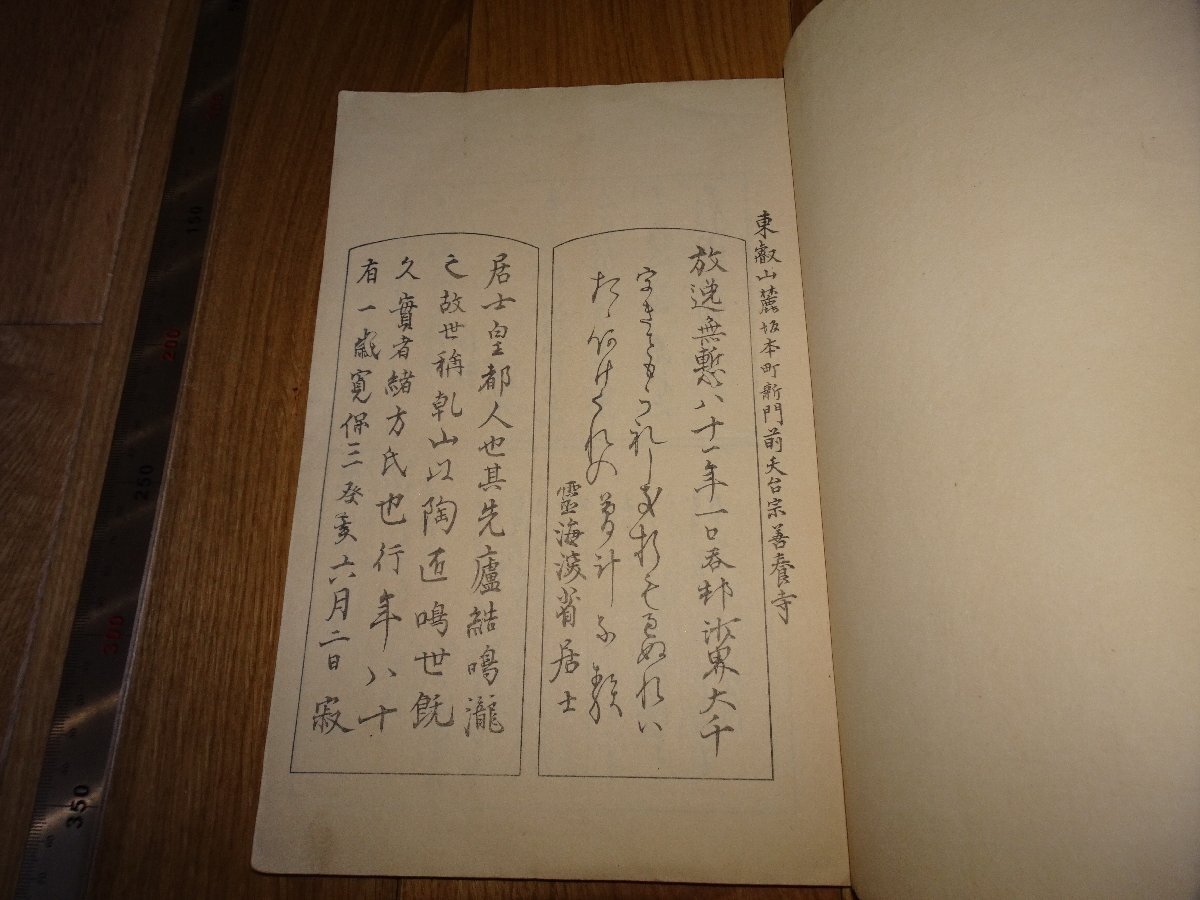 東叡山麓坂本町新門前天台宗善養寺
放逸無慙八十一年一口呑却沙界大千
うきこともうれしき折も過ぬれハ
たゝあけくれの夢計なる
靈海深省居士
居士皇都人也其先廬結鳴瀧
之故世稱乾山以陶匠鳴世既
久實者緒方氏也行年八十
有一歳寛保三癸亥六月二日寂
150
200
250
300
350